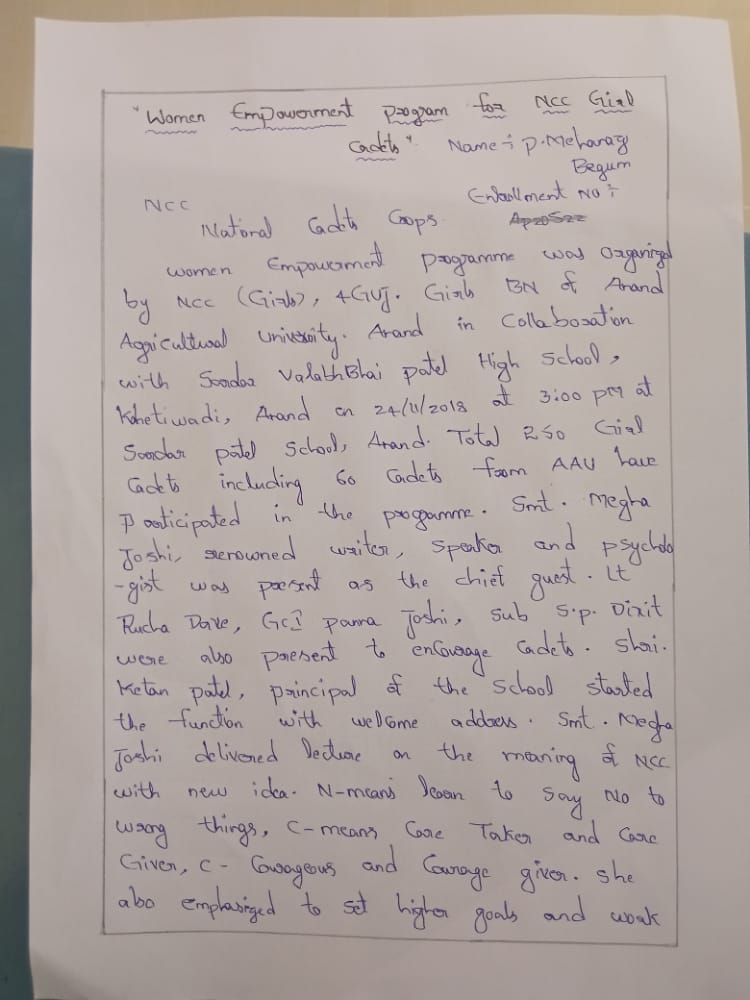 "Women Empowerment program for NCC Girl
Cadets" Name :- P. Meharaj
Begum
Enrollment NO :-
NCC
National Cadets Corps
Women Empowerment programme was Organized
by NCC (Girls), 4 GUJ. Girls BN of Anand
Agricultural University. Anand in Collaboration
with Sardar ValabhBhai patel High School,
Khetiwadi, Anand on 24/11/2018 at 3:00 PM at
Sardar patel School, Anand. Total 250 Girl
Cadets including 60 Cadets from AAU have
Participated in the programme. Smt. Megha
Joshi, renowned writer, Speaker and psycholo
-gist was present as the chief guest. Lt
Rucha Dave, GCI panna Joshi, Sub S.p. Dixit
were also present to encourage Cadets. Shri.
Ketan patel, principal of the School started
the function with welcome address. Smt. Megha
Joshi delivered lecture on the meaning of NCC
with new idea. N-means learn to Say No to
wrong things, C-means Care Taker and Care
Giver, C- Courageous and Courage giver. She
also emphasized to set higher goals and work